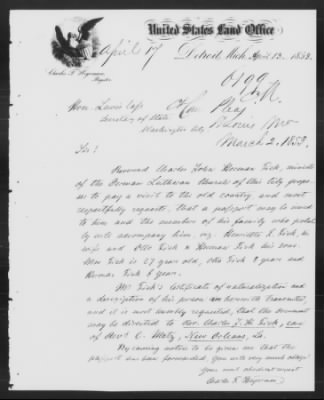 United States Land Office
April 17
Detroit, Mich. April 13. 1858.
Charles F. Heyerman
Register
Hon. Lewis Cass
Secretary of State
Washington City
March 2. 1858.
Sir!
Reverend Charles John Herman Fick, minister
of the German Lutheran Church of this City proposes
us to pay a visit to the old country, and most
respectfully requests, that a passport may be issued
to him and the members of his family who probab-
ly will accompany him, viz: Henrietta E. Fick, his
wife and Otto Fick & Herman Fick his sons.
Mrs Fick is 27 years old, Otto Fick 8 years and
Herman Fick 6 years.
Mr Fick's Certificate of naturalization and
a description of his person are herewith transmitted,
and it is most humbly requested, that the document
may be directed to Rev. Charles J. H. Fick, care
of Rev'd C. Metz, New Orleans, La.
By causing notice to be given me that the
passport has been forwarded, you will very much oblige
Your most obedient servant
Charles F. Heyerman